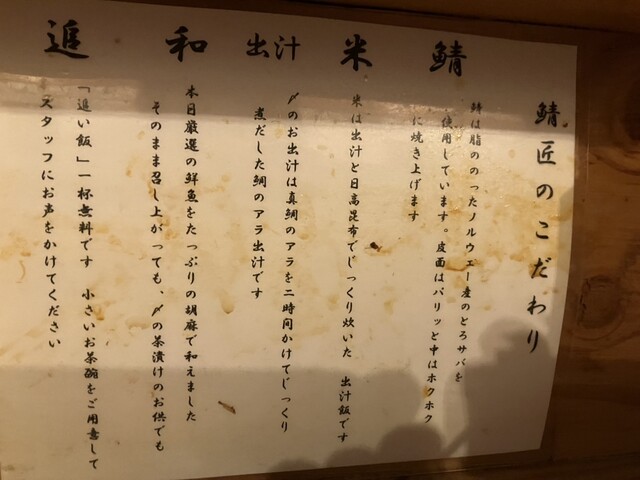 鯖匠のこだわり
鯖
鯖は脂ののったノルウェー産のとろサバを
使用しています。皮面はパリッと中はホクホク
に焼き上げます
米
米は出汁と日高昆布でじっくり炊いた 出汁飯です
出汁
〆のお出汁は真鯛のアラを二時間かけてじっくり
煮だした鯛のアラ出汁です
和
本日厳選の鮮魚をたっぷりの胡麻で和えました
そのまま召し上がっても、〆の茶漬けのお供でも
追
「追い飯」一杯無料です 小さいお茶碗をご用意して
スタッフにお声をかけてください